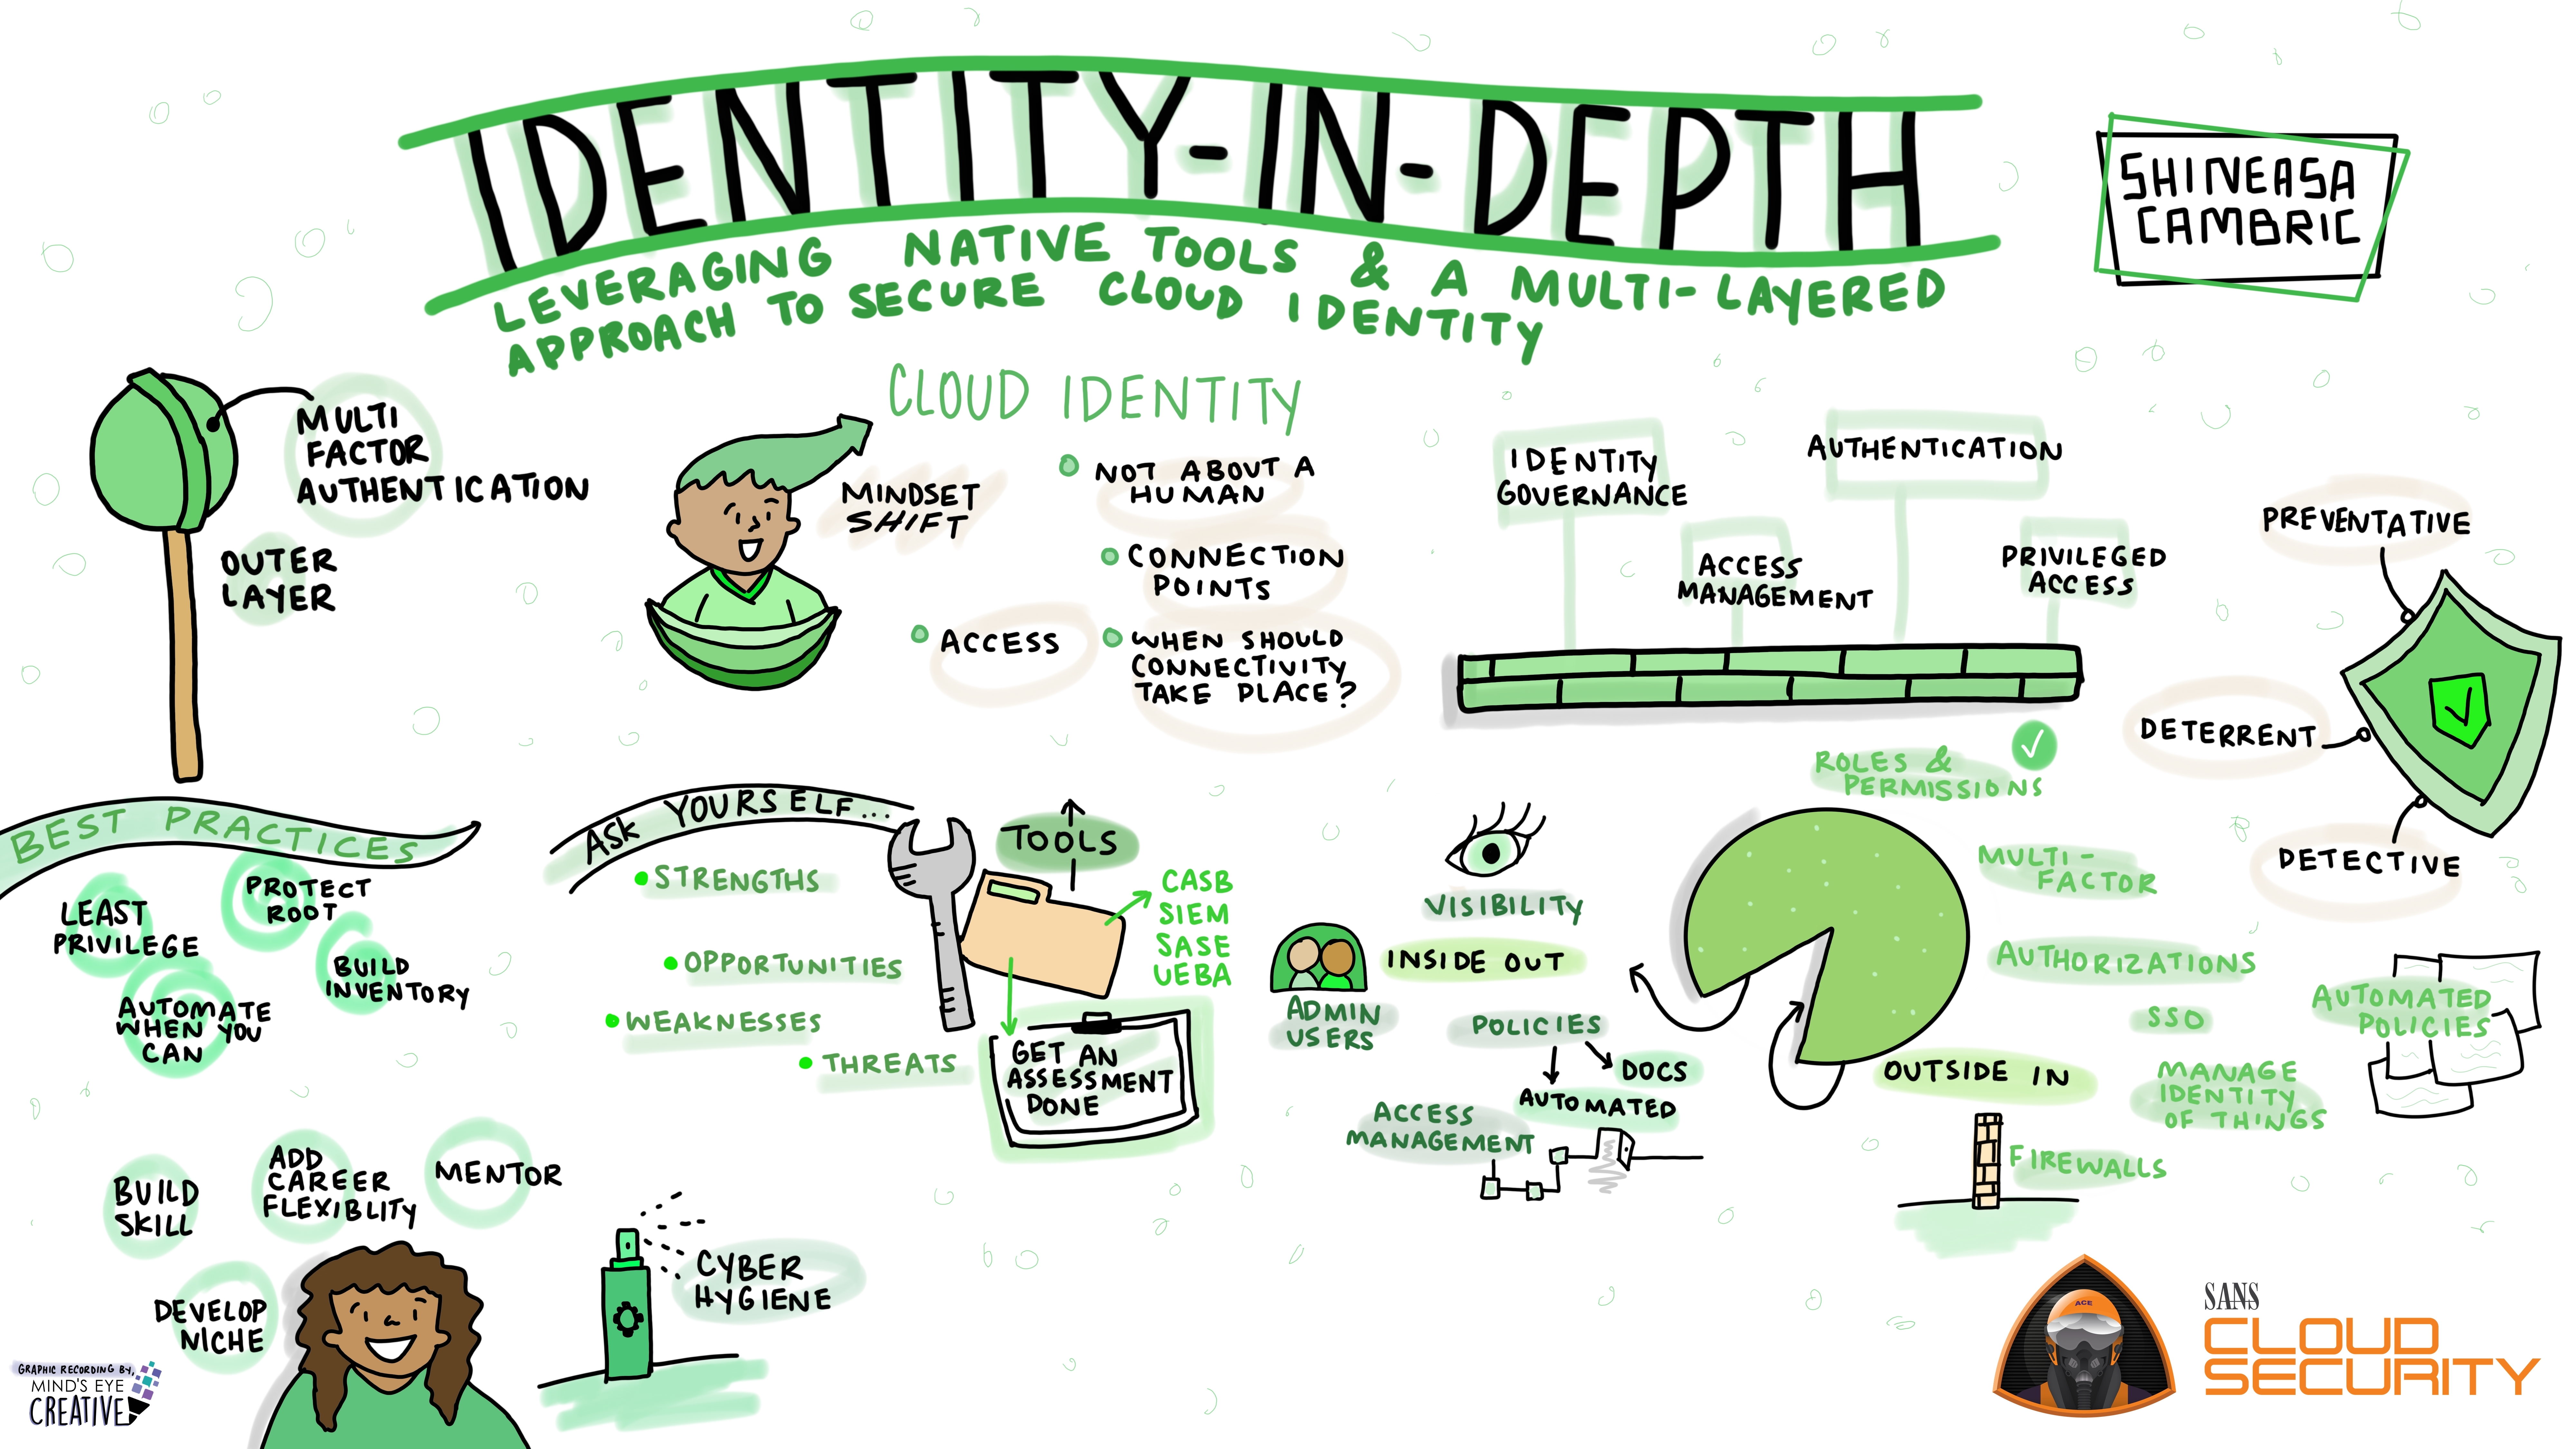 IDENTITY-IN-DEPTH
LEVERAGING NATIVE TOOLS & A MULTI-LAYERED
APPROACH TO SECURE CLOUD IDENTITY
SHINEASA
CAMBRIC
MULTI
FACTOR
AUTHENTICATION
OUTER
LAYER
CLOUD IDENTITY
MINDSET
SHIFT
NOT ABOUT A
HUMAN
CONNECTION
POINTS
ACCESS
WHEN SHOULD
CONNECTIVITY
TAKE PLACE?
IDENTITY
GOVERNANCE
ACCESS
MANAGEMENT
AUTHENTICATION
PRIVILEGED
ACCESS
PREVENTATIVE
DETERRENT
DETECTIVE
BEST PRACTICES
LEAST
PRIVILEGE
PROTECT
ROOT
BUILD
INVENTORY
AUTOMATE
WHEN YOU
CAN
ASK YOURSELF...
STRENGTHS
OPPORTUNITIES
WEAKNESSES
THREATS
TOOLS
CASB
SIEM
SASE
UEBA
GET AN
ASSESSMENT
DONE
VISIBILITY
INSIDE OUT
ADMIN
USERS
POLICIES
DOCS
AUTOMATED
ACCESS
MANAGEMENT
ROLES &
PERMISSIONS
MULTI-
FACTOR
AUTHORIZATIONS
SSO
OUTSIDE IN
MANAGE
IDENTITY
OF THINGS
FIREWALLS
AUTOMATED
POLICIES
BUILD
SKILL
ADD
CAREER
FLEXIBLITY
MENTOR
DEVELOP
NICHE
CYBER
HYGIENE
GRAPHIC RECORDING BY,
MIND'S EYE
CREATIVE
ACE
SANS
CLOUD
SECURITY